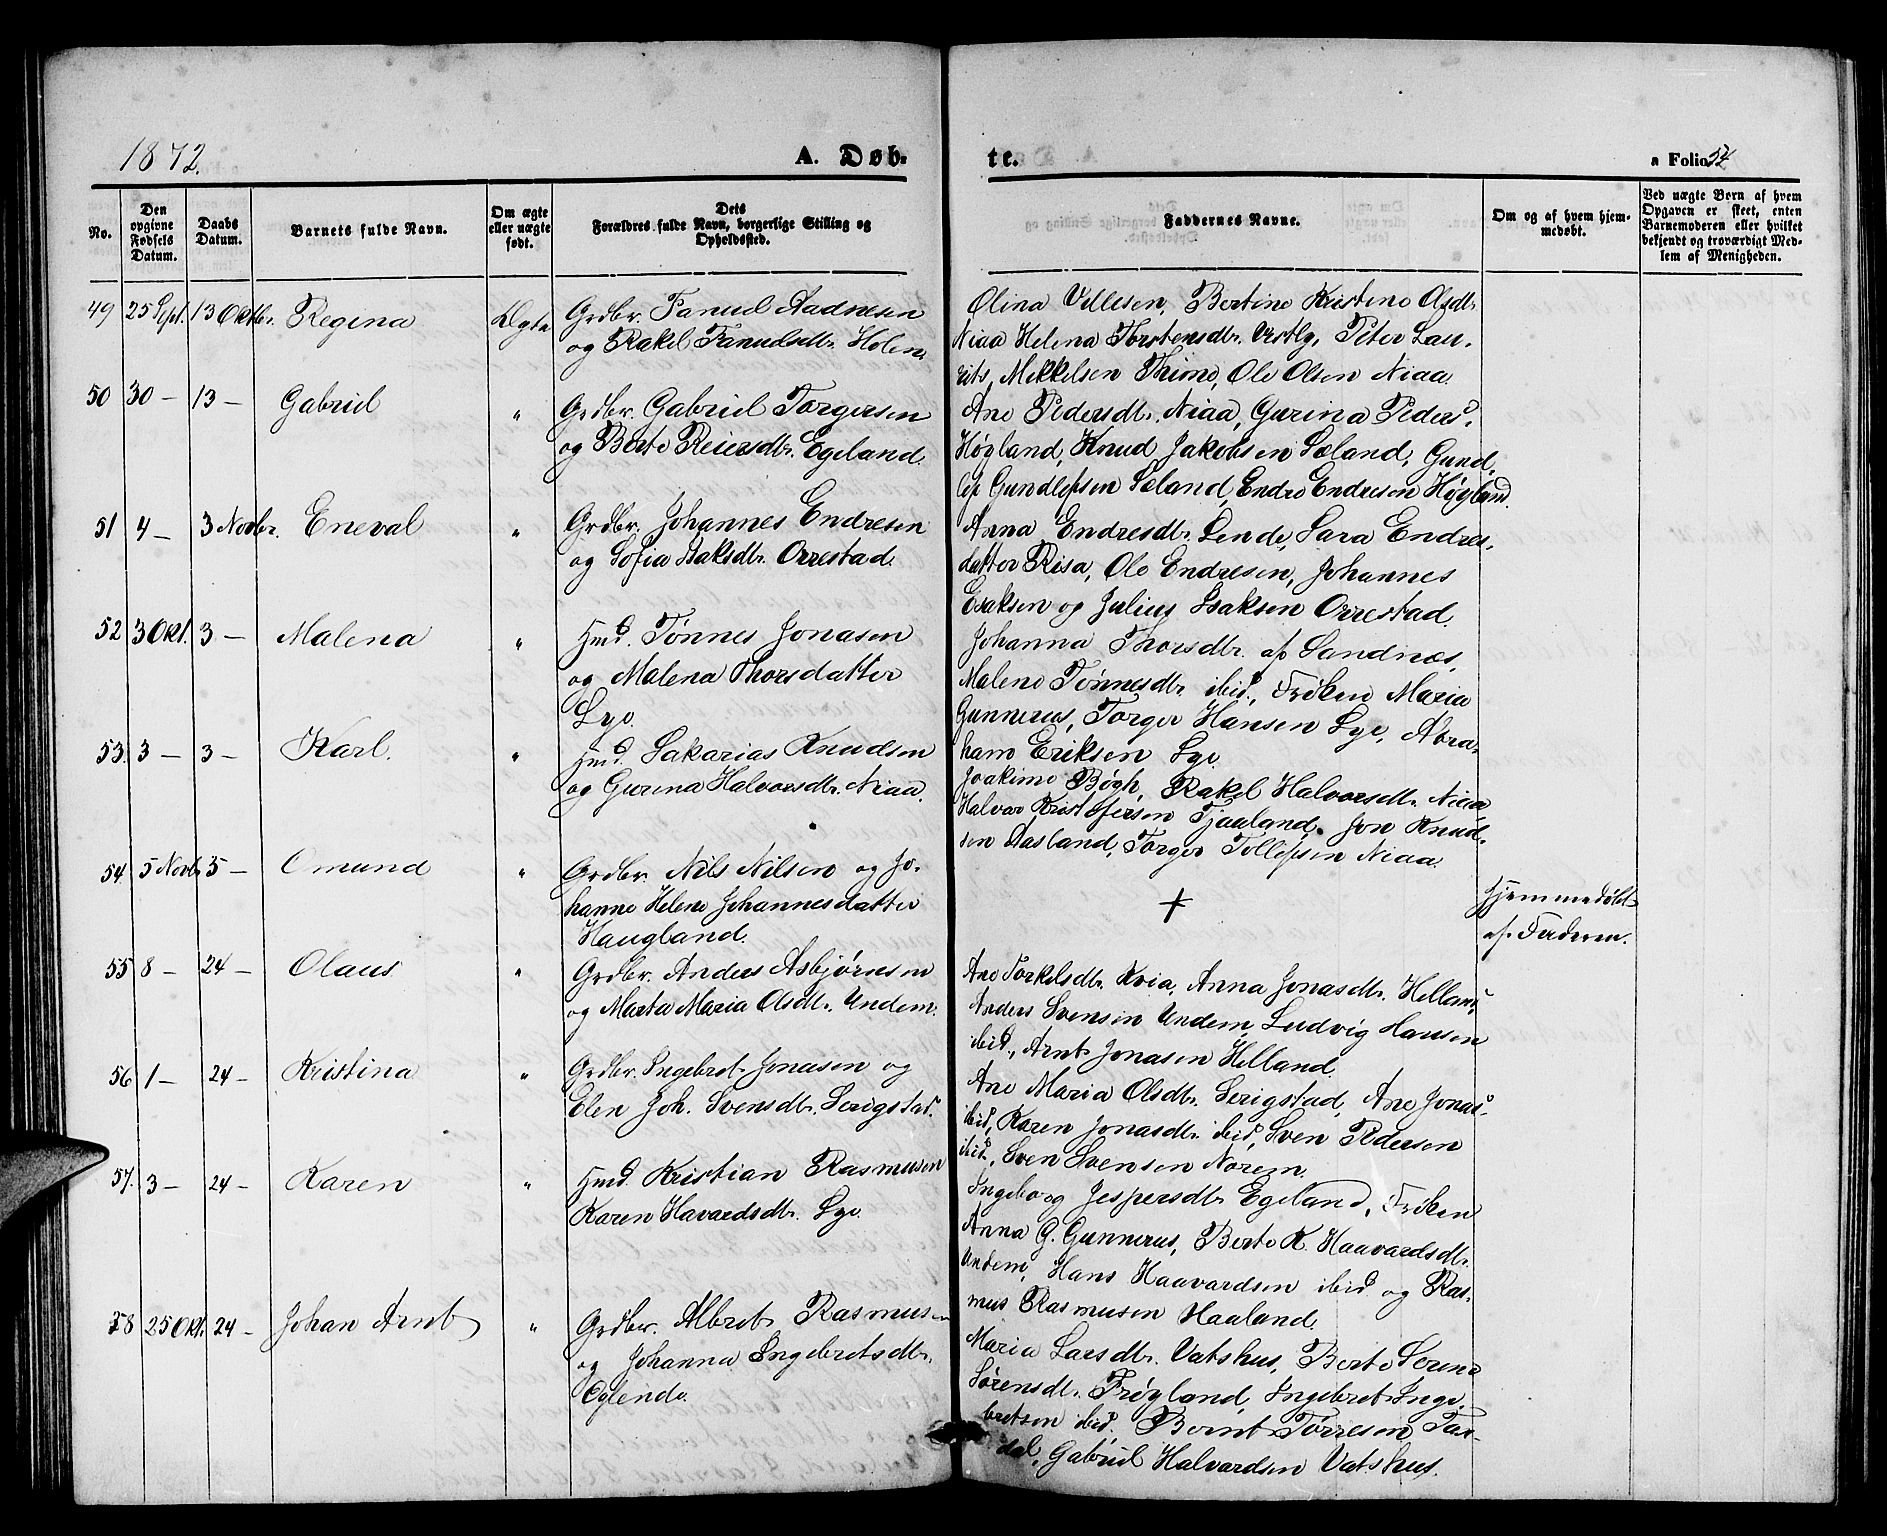 1872.
A. Døb-
te.
a Folio 52
No.
Den opgivne Fødsels Datum.
Daabs Datum.
Barnets fulde Navn.
Om ægte eller uægte født.
Dets Forældres fulde Navn, borgerlige Stilling og Opholdssted.
Faddernes Navne.
Om og af hvem hjemmedøbt.
Ved uægte Børn af hvem Opgaven er skeet, enten Barnemoderen eller hvilket bekjendt og troværdigt Medlem af Menigheden.
49 25 Sept. 13 Oktbr. Regina Ægte Grdbr. Tanuel Aadnesen
og Rakel Tanuelsdtr. Holen.
Olina Vellesen, Bertine Kristine Olsdtr.
Niaa Helena Torstensdtr. Vestly, Peter Lau-
rits Mikkelsen Thime, Ole Olsen Niaa.
50 30 — 13 — Gabriel " Grdbr. Gabriel Torgersen
og Berte Reiersdtr. Egeland.
Ane Pedersdtr. Niaa, Gurina Peders d.
Høgland, Knud Jakobsen Sæland, Gund-
lef Gundlefsen Sæland, Endre Endresen Høyland.
51 4 — 3 Novbr. Eneval " Grdbr. Johannes Endresen
og Sofia Isaksdtr. Orrestad.
Anna Endresdtr. Lende, Sara Endres-
datter Risa, Ole Endresen, Johannes
Esaksen og Julius Isaksen Orrestad.
52 3 Okt. 3 — Malena " Hmd. Tønnes Jonasen
og Malena Thorsdatter
Lye.
Johanna Thorsdtr. af Sandnæs,
Malene Tønnesdtr. ibid., Frøken Maria
Gunnerus, Torger Hansen Lye, Abra-
ham Eriksen Lye.
53. 3 — 3 — Karl. " Hmd. Sakarias Knudsen
og Gurina Halvorsdtr. Niaa.
Joakime Bøgh, Rakel Halvorsdtr. Niaa,
Halvor Kristofersen Tjaaland, Jon Knud-
sen Aasland, Torger Tollefsen Niaa.
54. 5 Novbr 5 — Omund " Grdbr. Nils Nilsen og Jo-
hanne Helene Johannesdatter
Haugland.
Hjemmedøbt
af Faderen.
55 8 — 24 — Olaus " Grdbr. Anders Asbjørnsen
og Marta Maria Olsdtr. Undem.
Ane Torkelsdtr. Kvia, Anna Jonasdtr. Helland,
Anders Svensen Undem, Ludvig Hansen
ibid., Arnt Jonasen Helland.
56 1 — 24 — Kristina " Grdbr. Ingebret Jonasen og
Elen Joh. Svensdtr. Serigstad.
Ane Maria Olsdtr. Serigstad, Ane Jonas d.
ibid, Karen Jonasdtr. ibid, Sven Pedersen
ibid., Sven Svensen Norem.
57. 3 — 24 — Karen " Hmd. Kristian Rasmusen
Karen Havardsdtr. Lye.
Ingeborg Jespersdtr. Egeland, Frøken
Anna G. Gunnerus, Berte K. Haavardsdtr.
Undem, Hans Haavardsen ibid og Ras-
mus Rasmusen Haaland.
58 25 Okt. 24 — Johan Arnt " Grdbr. Albret Rasmusen
og Johanna Ingebretsdtr.
Øglende.
Maria Larsdtr. Vatshus, Berte Serina
Sørensdtr. Frøyland, Ingebret Inge-
bretsen ibid, Bernt Tørresen Tar-
dal, Gabriel Halvardsen Vatshus.